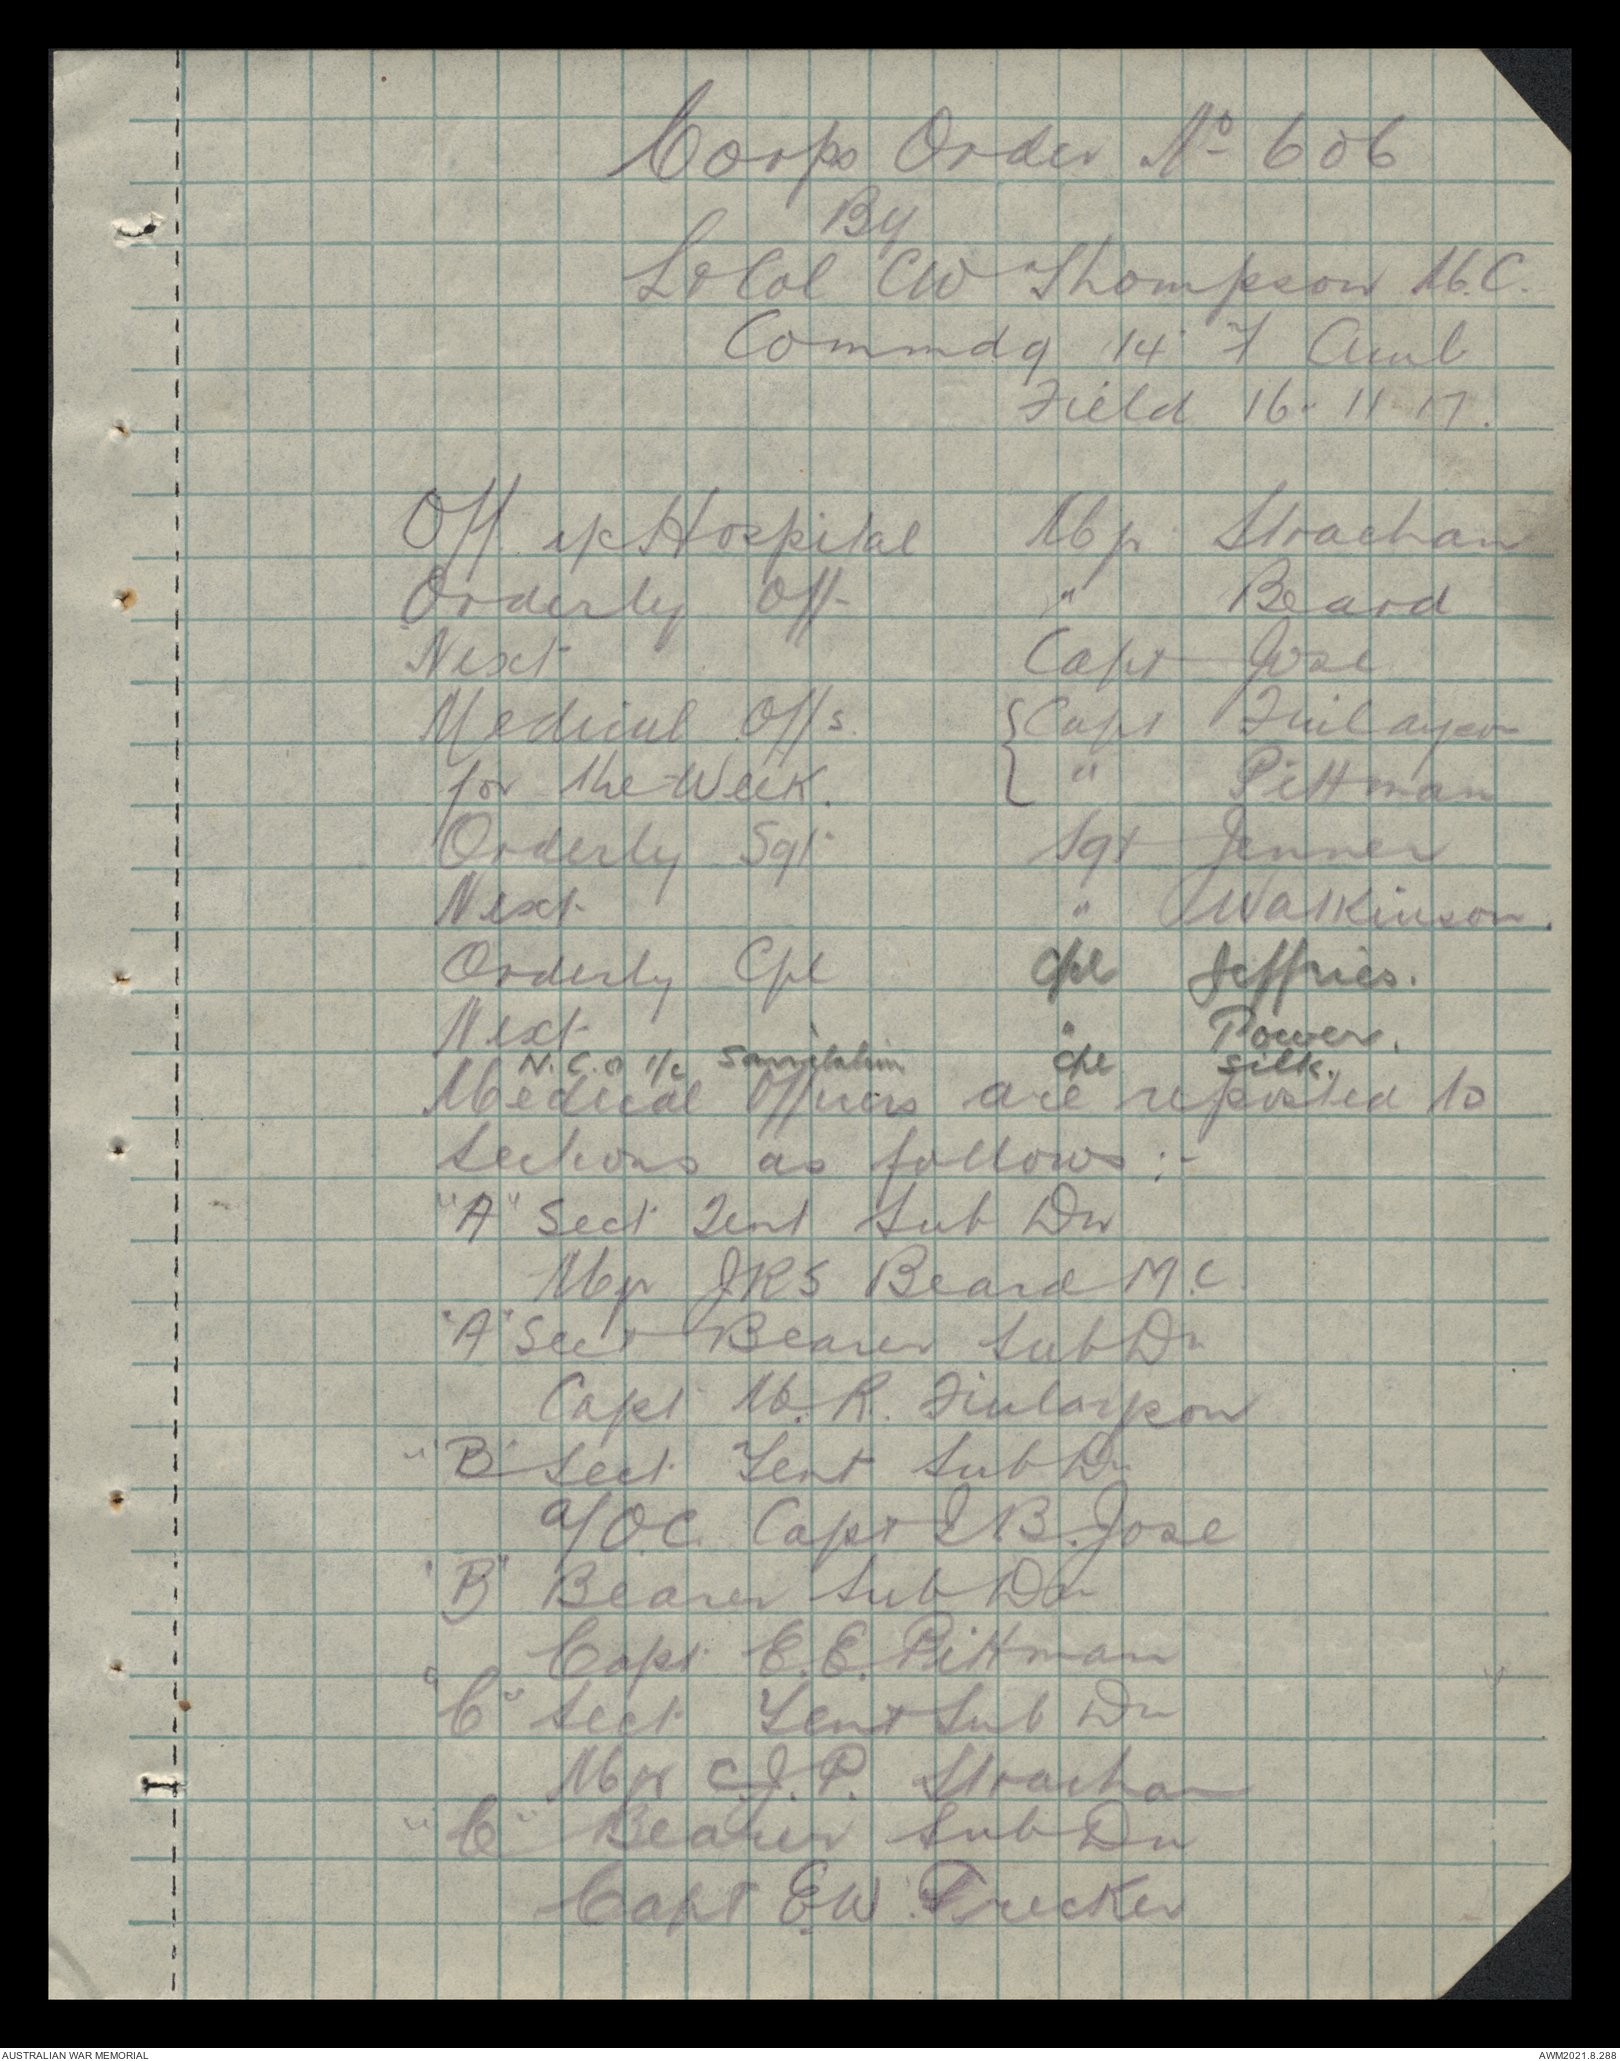 Corps Order No 606
By
Lt Col CW Thompson M.C.
Commdg 14 F Amb
Field 16-11-17.
Off i/c Hospital Mjr Strachan
Orderly Off " Beard
Next Capt Jose
Medical Offs. { Capt Finlayson
for the Week. " Pittman
Orderly Sgt Sgt Jenner
Next " Watkinson.
Orderly Cpl Cpl Jeffries.
Next " Power.
N.C.O i/c Sanitation Cpl Silk.
Medical Officers are reposted to
Sections as follows :-
"A" Sect Tent Sub Dn
Mjr JRS Beard M.C
"A" Sect Bearer Sub Dn
Capt M.R. Finlayson
"B" Sect Tent Sub Dn
a/O.C. Capt I.B. Jose
"B" Bearer Sub Dn
Capt E.E. Pittman
"C" Sect Tent Sub Dn
Mjr C.J.P. Strachan
"C" Bearer Sub Dn
Capt E.W. Trecker
AUSTRALIAN WAR MEMORIAL AWM2021.8.288